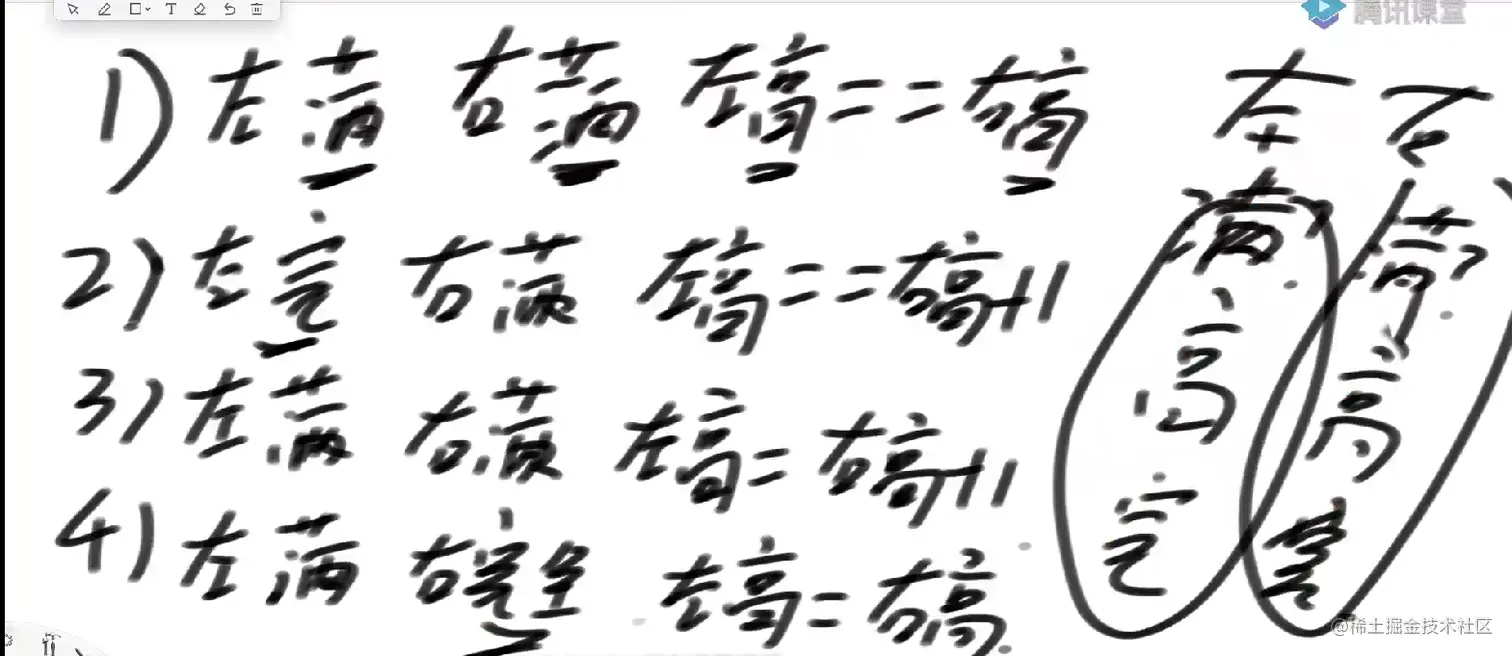 腾讯课堂
1) 左满 右满 左高==右高
2) 左完 右满 左高==右高+1
3) 左满 右满 左高=右高+1
4) 左满 右完全 左高=右高
左 右
满? 满?
高 高
完 完
@稀土掘金技术社区